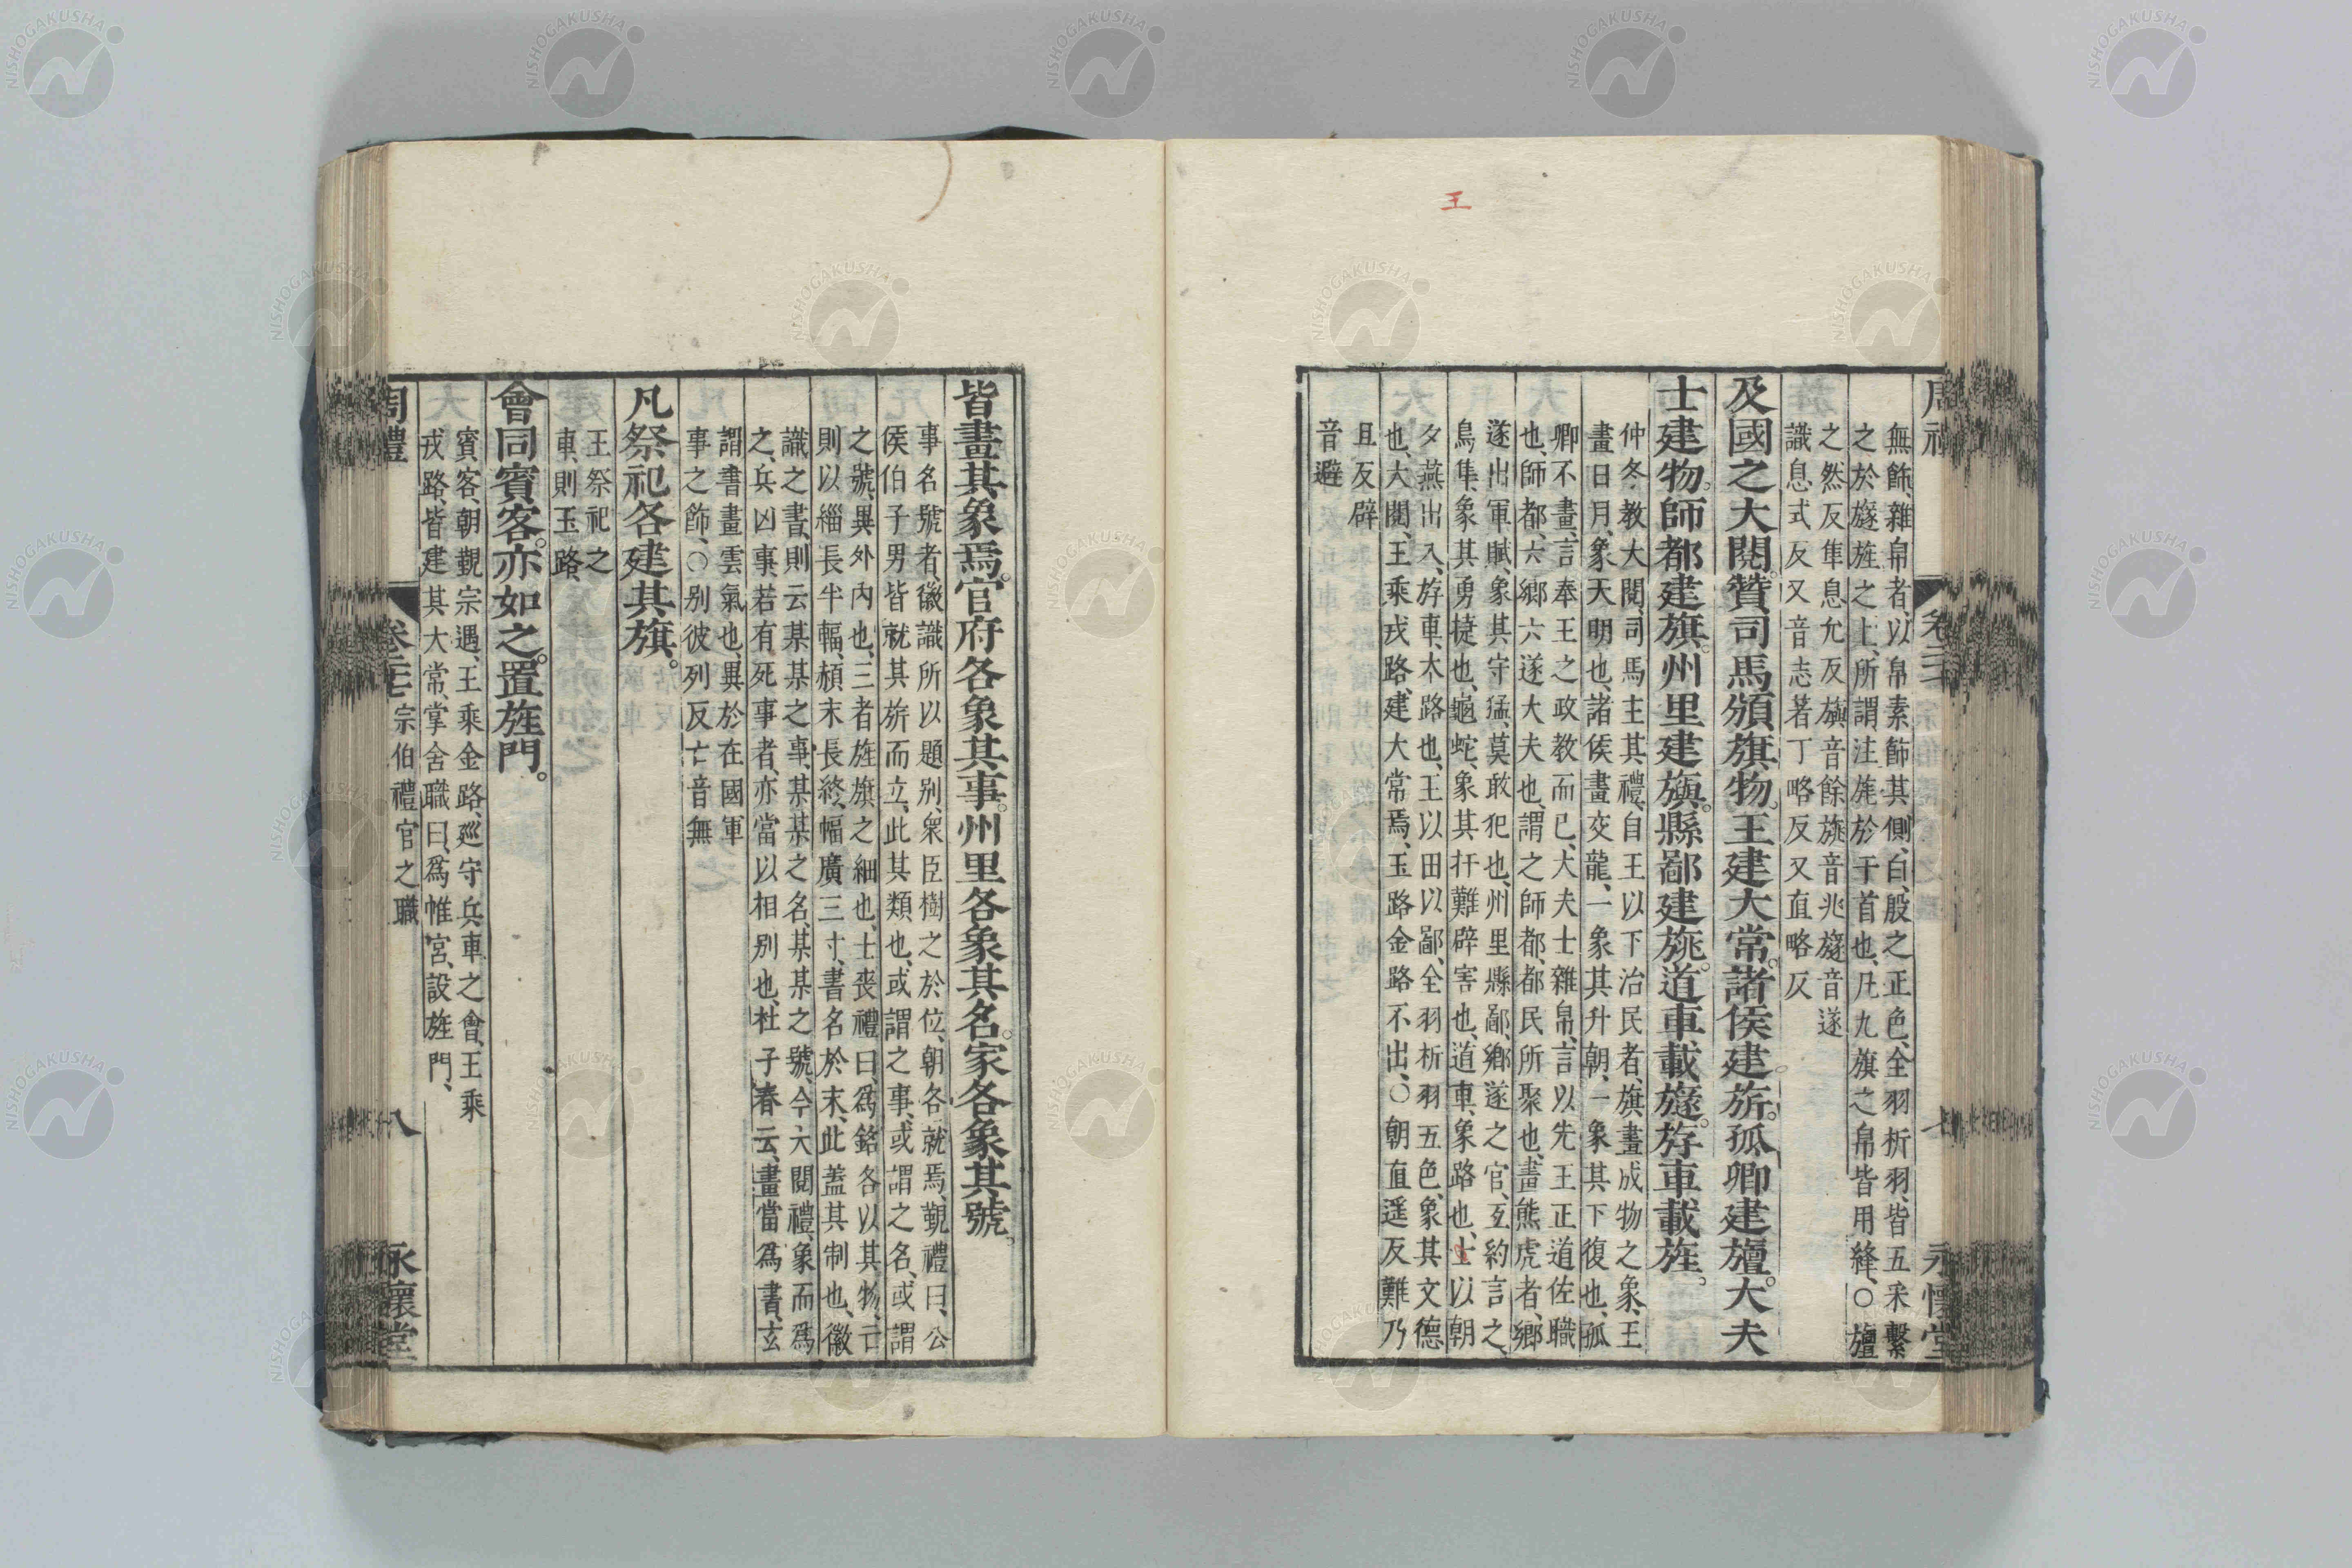 王
無飾、雜帛者、以帛素飾其側、白、殷之正色、全羽析羽、皆五采繫
之於旞旌之上、所謂注旄於干首也、凡九旗之帛皆用絳、○旜
之然反隼息允反旟音餘旐音兆旞音遂
識息式反又音志著丁略反又直略反
及國之大閱。贊司馬頒旗物。王建大常。諸侯建旂。孤卿建旜。大夫
士建物。師都建旗。州里建旟。縣鄙建旐。道車載旞。斿車載旌。
仲冬教大閱、司馬主其禮、自王以下治民者、旗畫成物之象、王
畫日月、象天明也、諸侯畫交龍、一象其升朝、一象其下復也、孤
卿不畫、言奉王之政教而已、大夫士雜帛、言以先王正道佐職
也、師都、六鄉六遂大夫也、謂之師都、都民所聚也、畫熊虎者、鄉
遂出軍賦、象其守猛、莫敢犯也、州里縣鄙、鄉遂之官、互約言之、
鳥隼、象其勇捷也、龜蛇、象其扞難辟害也、道車、象路也、士以朝
夕燕出入、斿車、木路也、王以田以鄙、全羽析羽五色、象其文德
也、大閱、王乘戎路、建大常焉、玉路金路不出、○朝直遥反難乃
且反辟
音避
周禮
卷二十七
七
永懷堂
皆畫其象焉。官府各象其事。州里各象其名。家各象其號。
事名號者、徽識所以題别、衆臣樹之於位、朝各就焉、覲禮曰、公
侯伯子男皆就其旂而立、此其類也、或謂之事、或謂之名、或謂
之號、異外内也、三者旌旗之細也、士喪禮曰、爲銘各以其物、亡
則以緇長半幅、赬末長終幅廣三寸、書名於末、此蓋其制也、徽
識之書、則云某某之事、某某之名、某某之號、今大閱禮、象而爲
之、兵凶事、若有死事者、亦當以相别也、杜子春云、畫當爲書、玄
謂書畫雲氣也、異於在國軍
事之飾、○别彼列反亡音無
凡祭祀各建其旗。
王祭祀之
車、則玉路、
會同賓客。亦如之。置旌門。
賓客、朝覲宗遇、王乘金路、廵守兵車之會、王乘
戎路、皆建其大常、掌舍職曰、爲帷宫、設旌門、
周禮
卷二十七 宗伯禮官之職
八
永懷堂